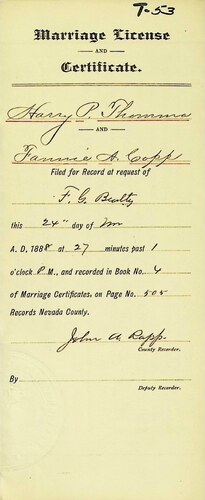 T-53
Marriage License
AND
Certificate.
Harry P. Thomma
AND
Fannie A. Copp
Filed for Record at request of
F. G. Beatty
this 24" day of
A. D. 1888 at 27 minutes past 1
o'clock P M., and recorded in Book No. 4
of Marriage Certificates, on Page No. 505
Records Nevada County.
John A. Rapp
County Recorder.
By
Deputy Recorder.